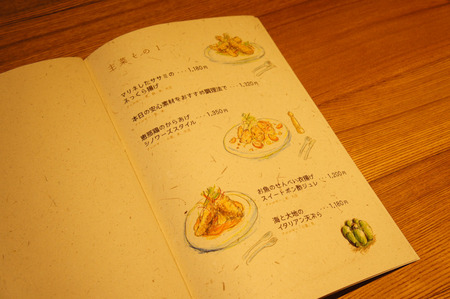 主菜 その1
マリネしたササミの
ふっくら揚げ ･･･1,180円
本日の安心素材をおすすめ調理法で ･･･1,320円
恵那鶏のからあげ
シノワーズスタイル ･･･1,350円
お魚のせんべい衣揚げ
スイートポン酢ジュレ ･･･1,350円
海と大地の
イタリアン天ぷら ･･･1,180円